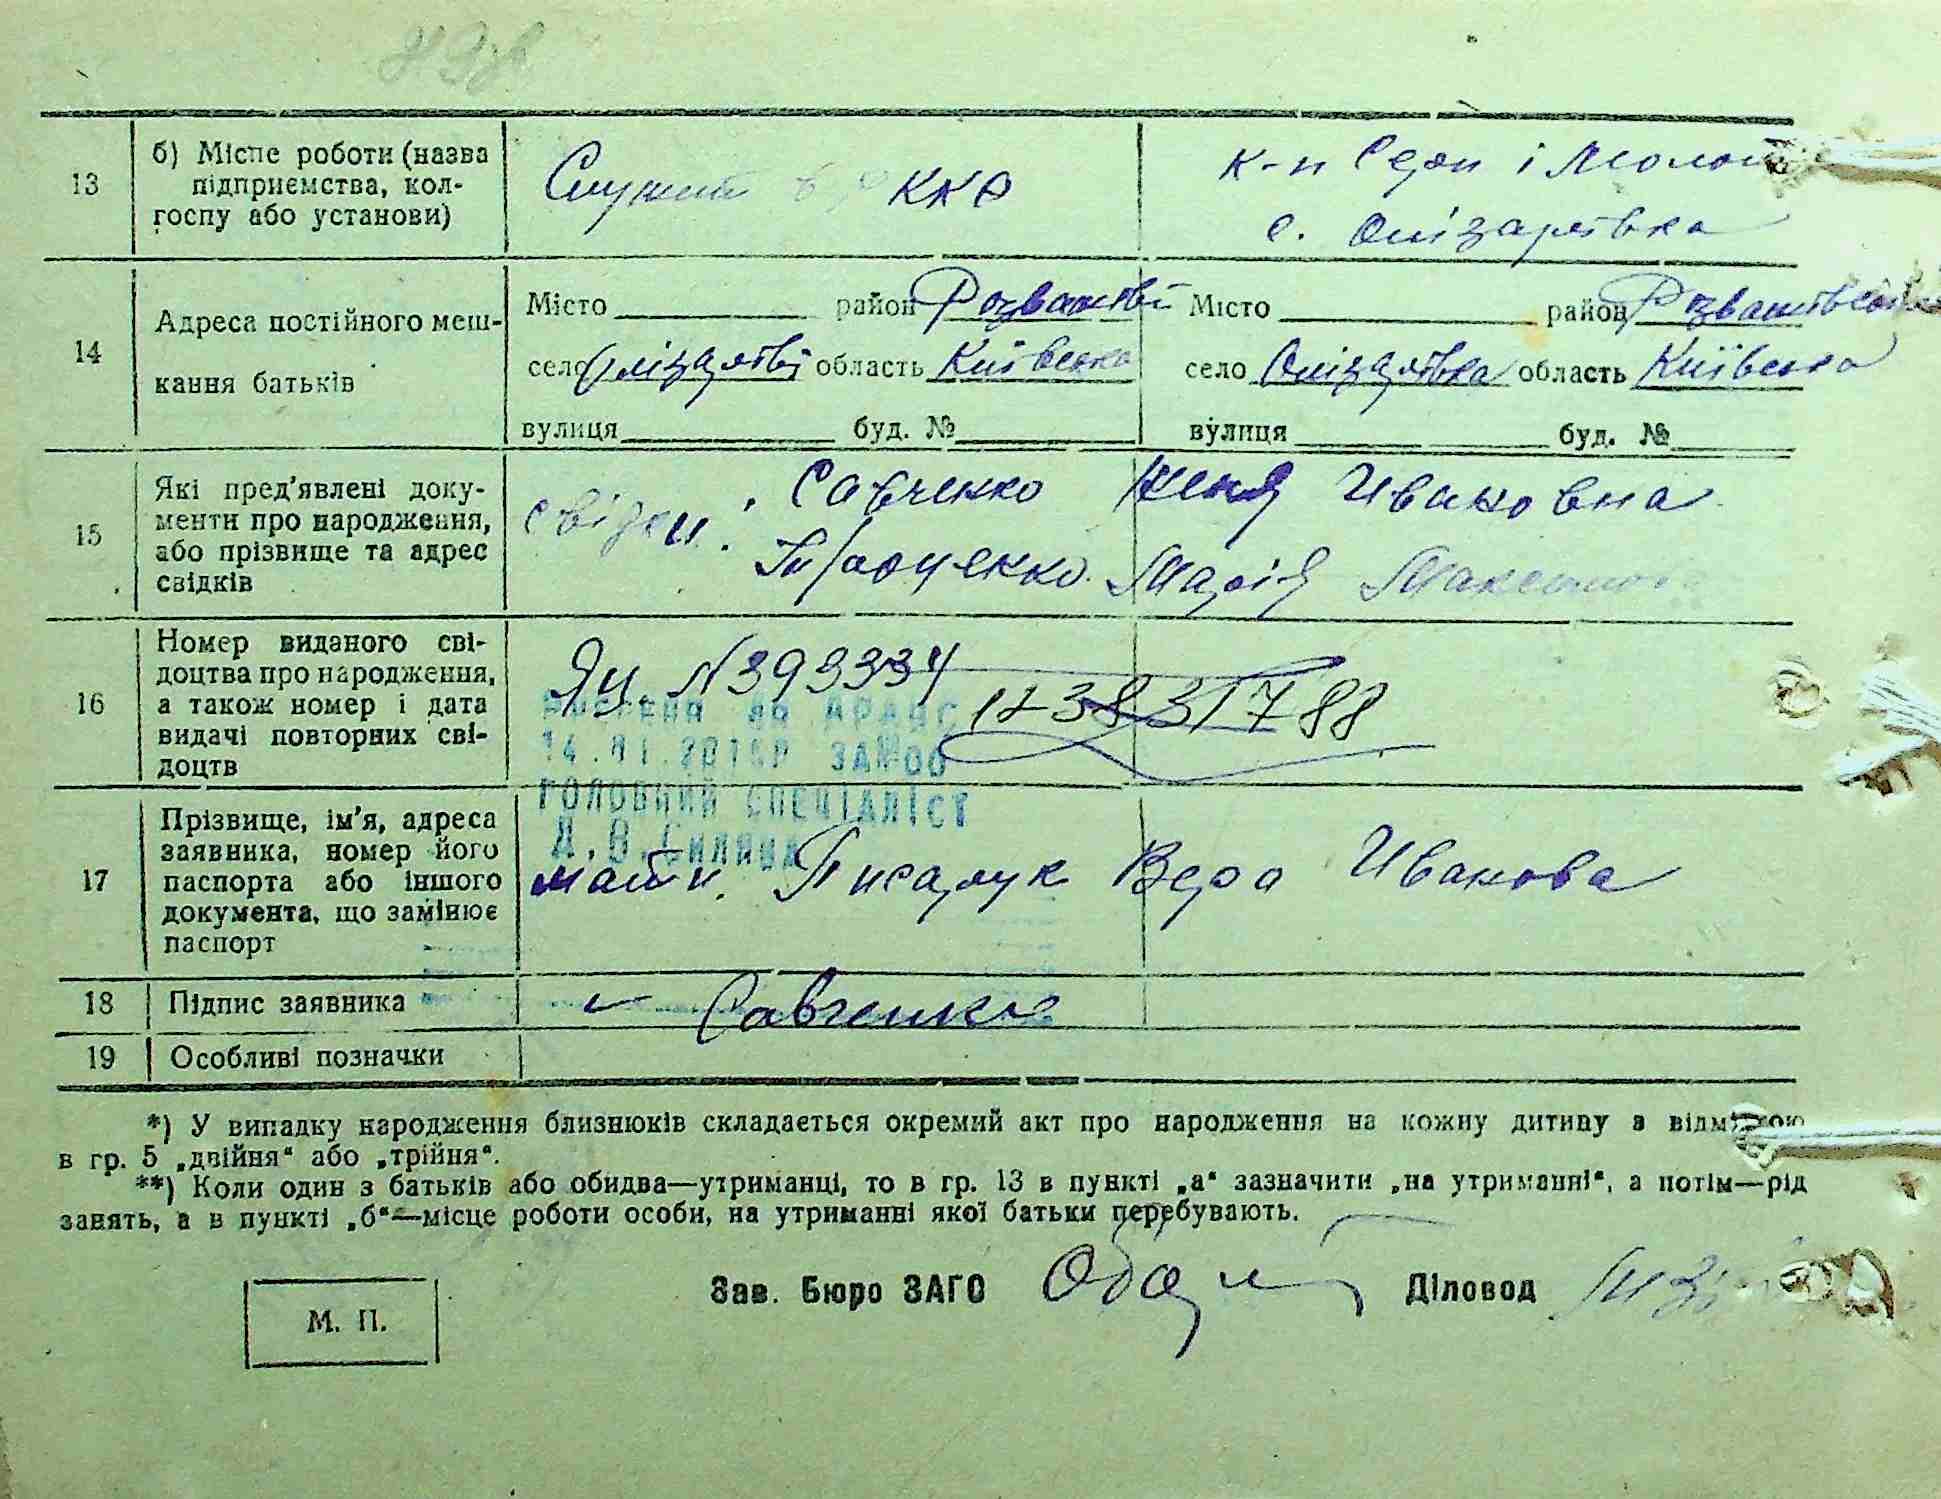 13 б) Місце роботи (назва підприємства, колгоспу або установи)
Служит в РККА
к-п Серп і Молот
с. Олізарівка
14 Адреса постійного мешкання батьків
Місто район Розважів
село область Київська
вулиця буд. №
Місто район Розважівськ
село Олізарівка область Київська
вулиця буд. №
15 Які пред'явлені документи про народження, або прізвище та адрес свідків
свідки: Савченко Ксеня Ивановна
Марія Максимовна
16 Номер виданого свідоцтва про народження, а також номер і дата видачі повторних свідоцтв
ЯЦ № 393334
ГОЛОВНИЙ СПЕЦІАЛІСТ
17 Прізвище, ім'я, адреса заявника, номер його паспорта або іншого документа, що замінює паспорт
мати. Писарук Вера Иванова
18 Підпис заявника
Савченко
19 Особливі позначки
*) У випадку народження близнюків складається окремий акт про народження на кожну дитину з відміткою
в гр. 5 „двійня“ або „трійня“.
**) Коли один з батьків або обидва—утриманці, то в гр. 13 в пункті „а“ зазначити „на утриманні“, а потім—рід
занять, а в пункті „б“—місце роботи особи, на утриманні якої батьки перебувають.
М. П.
Зав. Бюро ЗАГС
Діловод